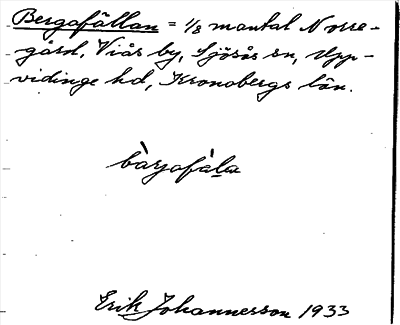 Bergafällan = 1/8 mantal Norre-
gård, Viås by, Sjösås sn, Upp-
vidinge hd, Kronobergs län.
bàrjafàla
Erik Johannesson 1933